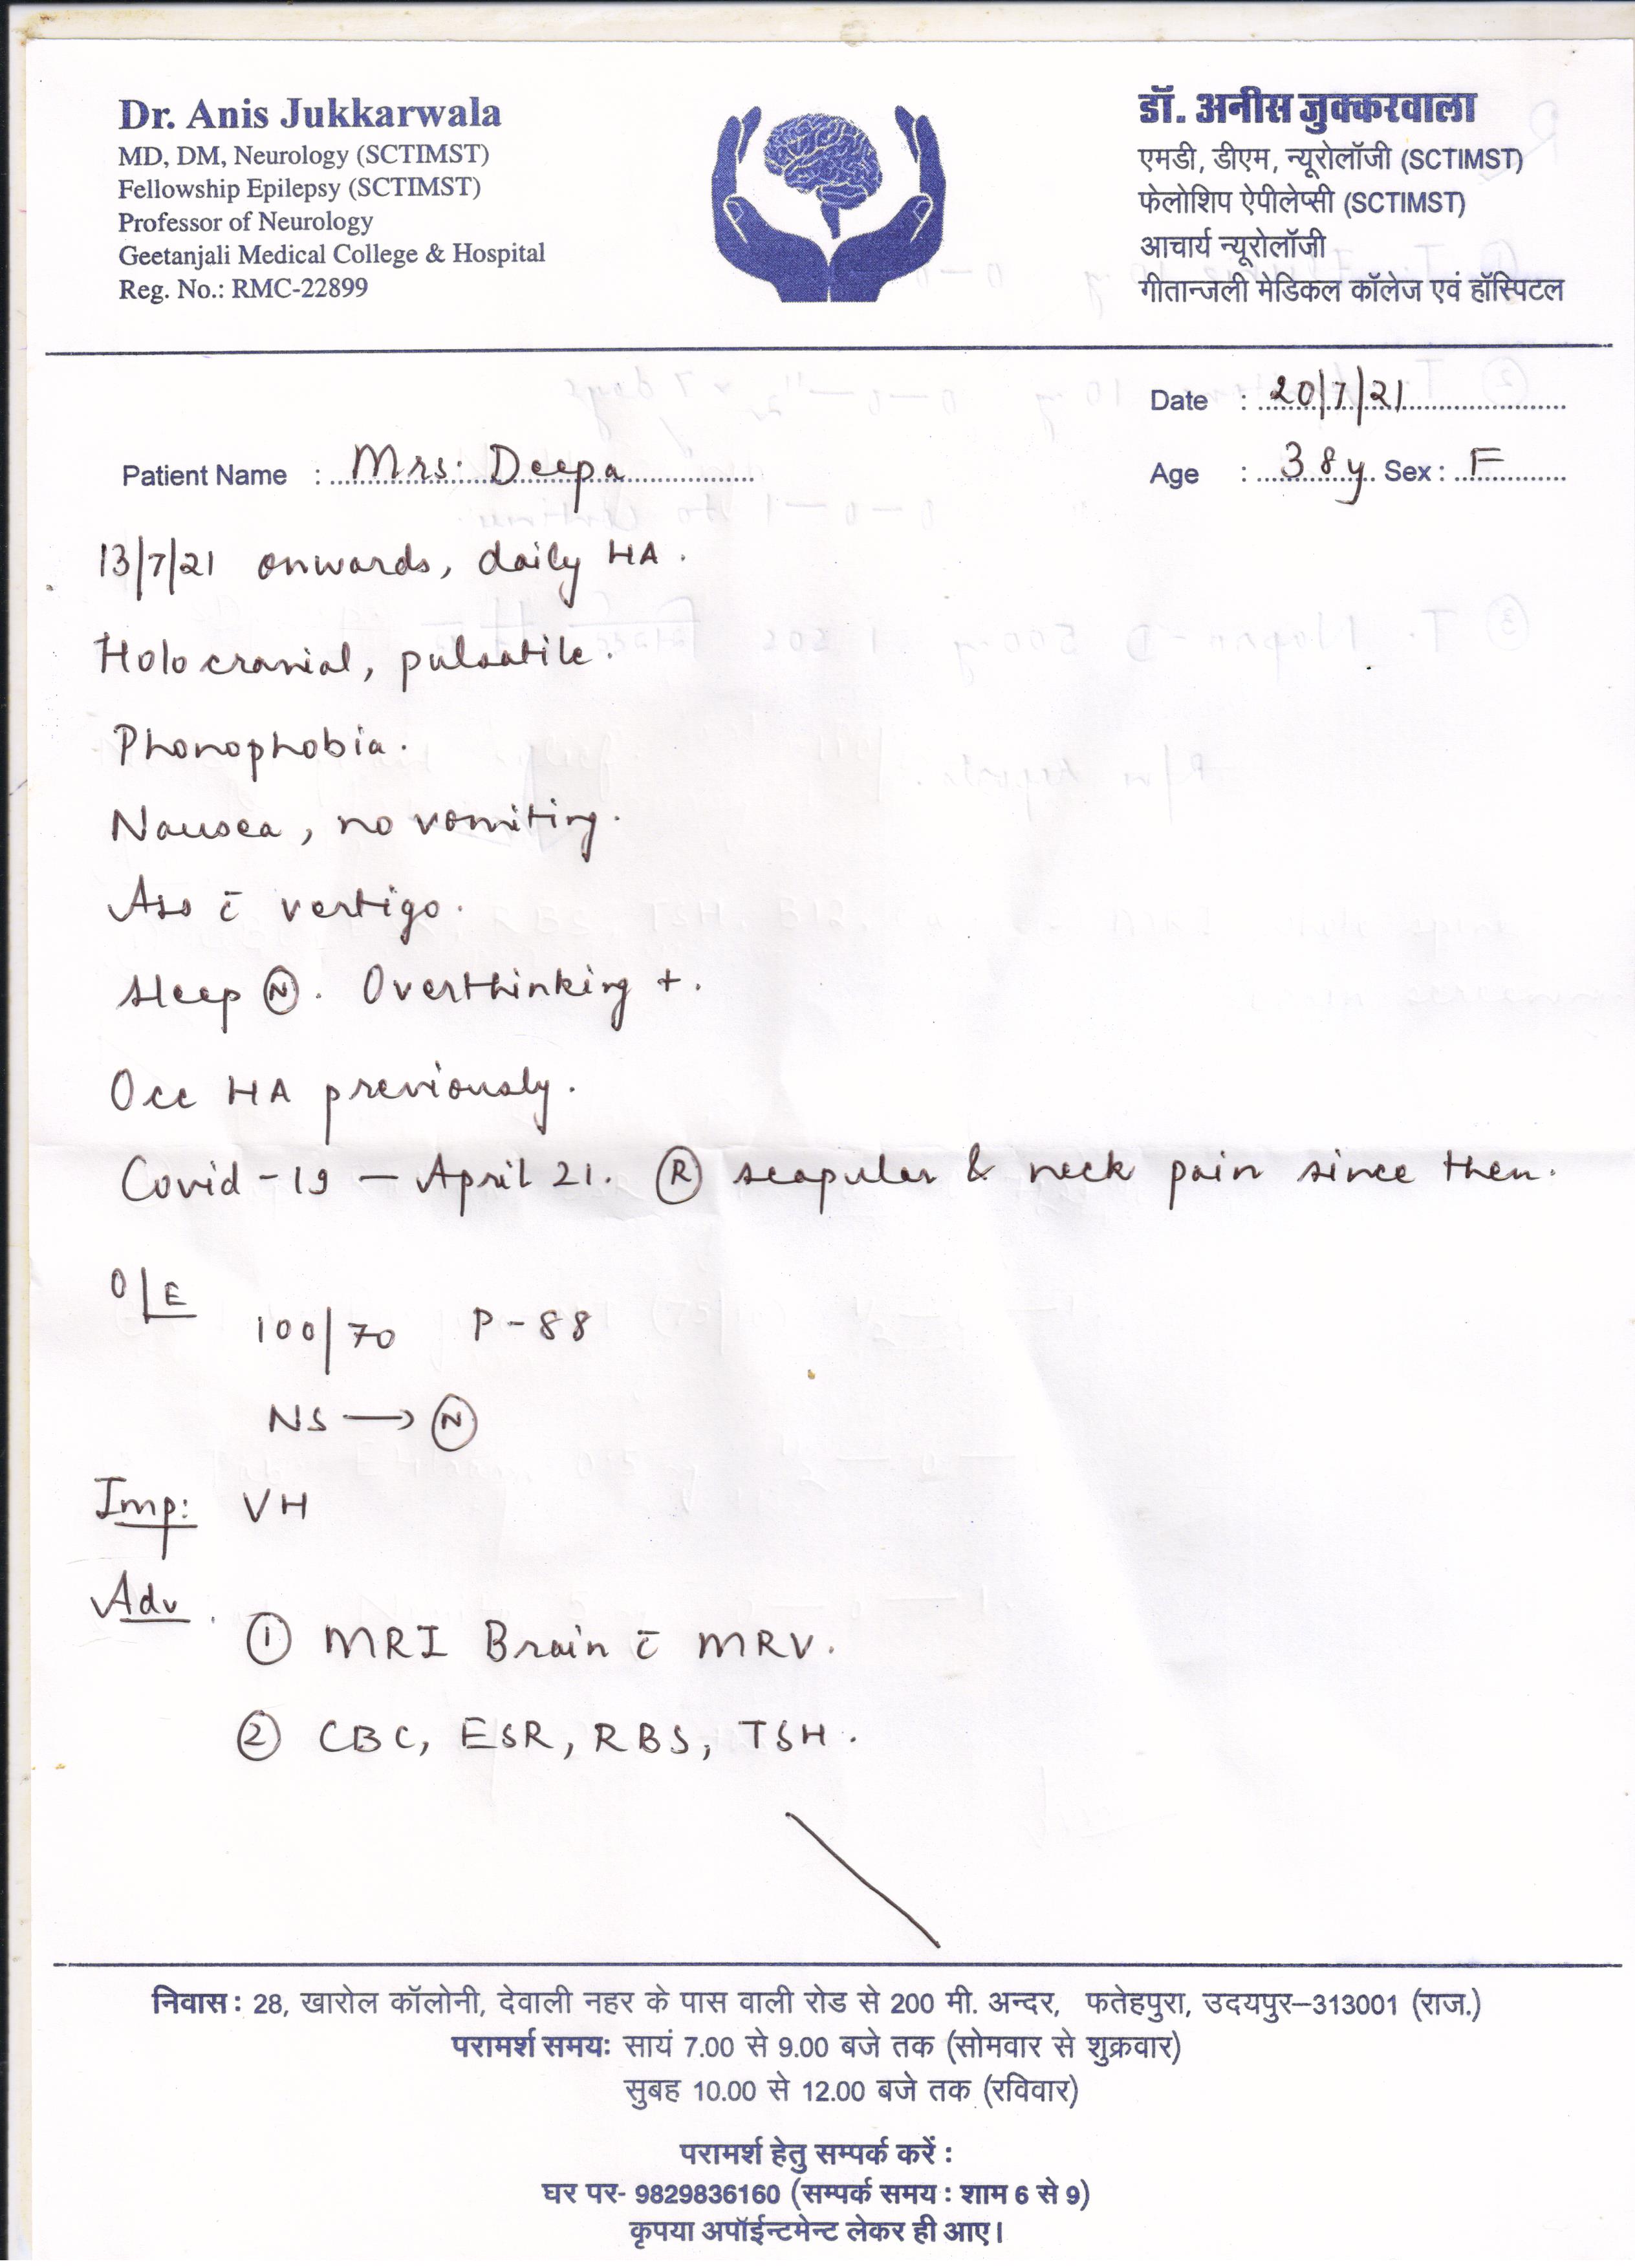 Dr. Anis Jukkarwala
MD, DM, Neurology (SCTIMST)
Fellowship Epilepsy (SCTIMST)
Professor of Neurology
Geetanjali Medical College & Hospital
Reg. No.: RMC-22899
डॉ. अनीस जुक्करवाला
एमडी, डीएम, न्यूरोलॉजी (SCTIMST)
फेलोशिप ऐपीलेप्सी (SCTIMST)
आचार्य न्यूरोलॉजी
गीतान्जली मेडिकल कॉलेज एवं हॉस्पिटल
Date : 20/7/21
Patient Name : Mrs. Deepa
Age : 38y Sex : F
13/7/21 onwards, daily HA.
Holocranial, pulsatile.
Phonophobia.
Nausea, no vomiting.
Ass c̄ vertigo.
Sleep Ⓝ. Overthinking +.
Occ HA previously.
Covid-19 – April 21. Ⓡ scapular & neck pain since then.
O/E
100/70 P-88
NS → Ⓝ
Imp: VH
Adv.
① MRI Brain c̄ MRV.
② CBC, ESR, RBS, TSH.
निवास : 28, खारोल कॉलोनी, देवाली नहर के पास वाली रोड से 200 मी. अन्दर, फतेहपुरा, उदयपुर–313001 (राज.)
परामर्श समयः सायं 7.00 से 9.00 बजे तक (सोमवार से शुक्रवार)
सुबह 10.00 से 12.00 बजे तक (रविवार)
परामर्श हेतु सम्पर्क करें :
घर पर- 9829836160 (सम्पर्क समय : शाम 6 से 9)
कृपया अपॉईन्टमेन्ट लेकर ही आए।